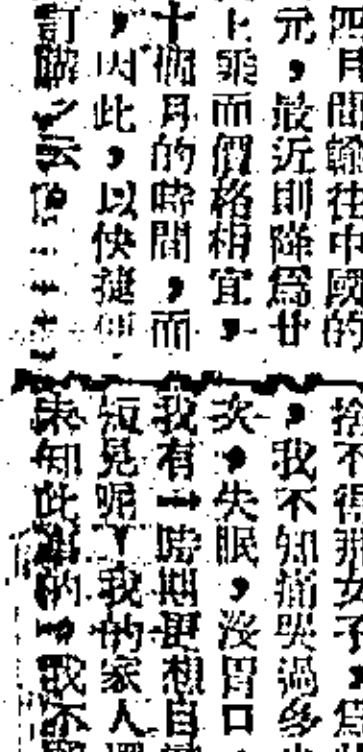 四月間輸往中國的
元，最近則降爲廿
上乘而價格相宜，
十個月的時間，而
，因此，以快捷
訂購
捨不得那女子，
，我不知痛哭過多
次，失眠，沒胃口
我有一時期更想自
短見呢？我的家人
未知此